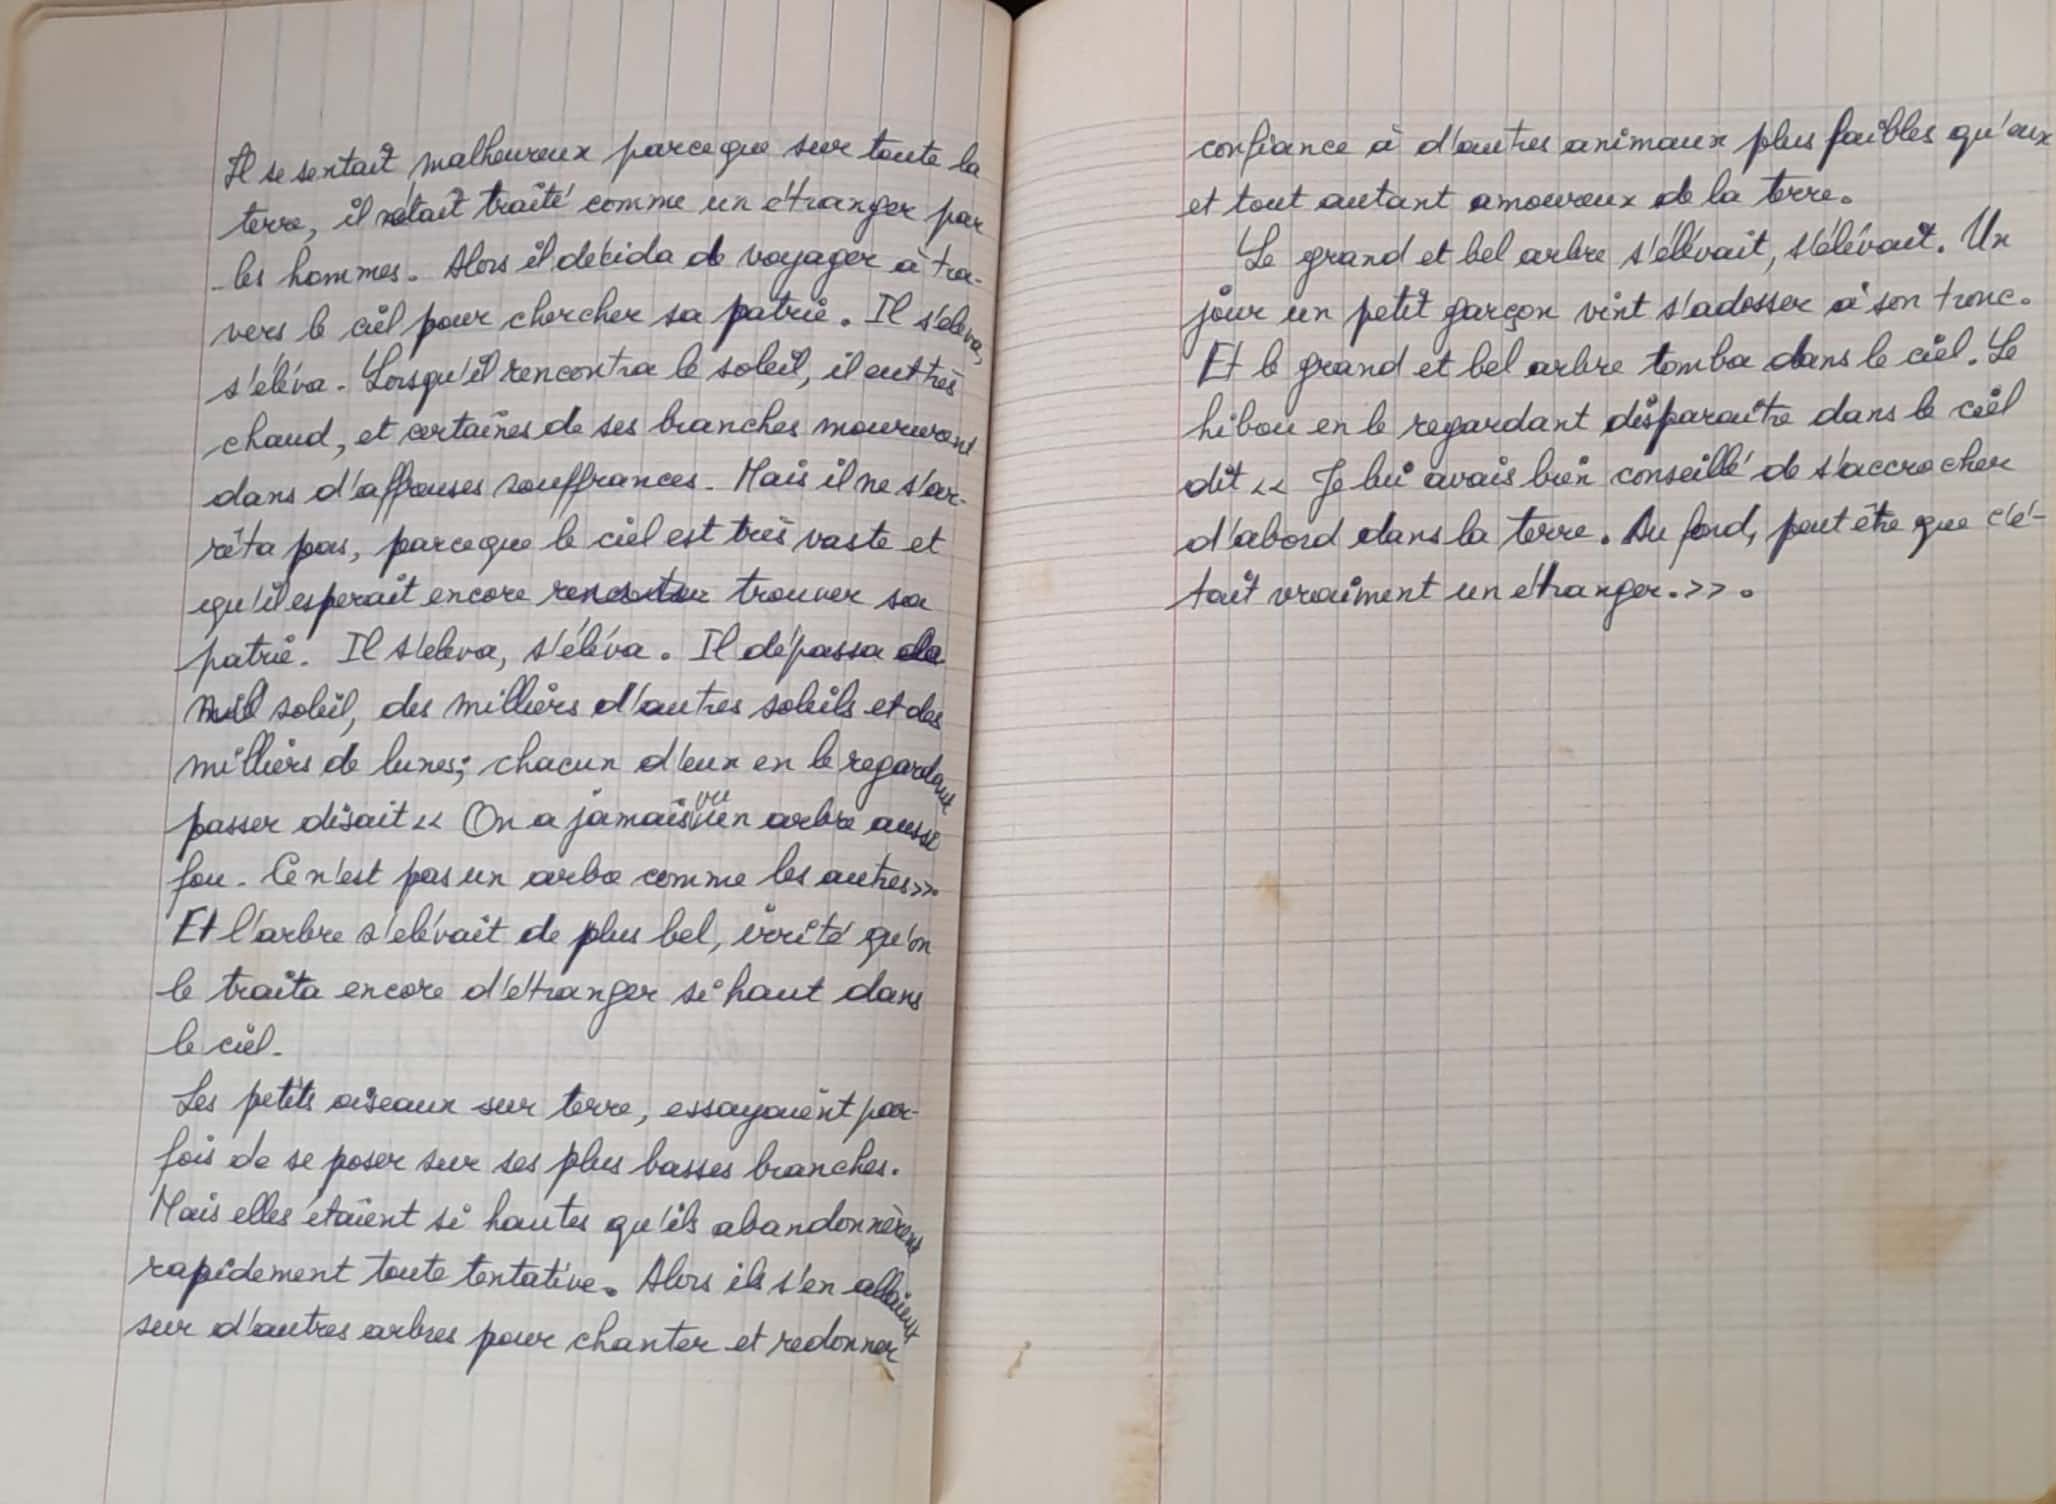 Il se sentait malheureux parceque sur toute la
terre, il était traité comme un étranger par
les hommes. Alors il décida de voyager à tra-
vers le ciel pour chercher sa patrie. Il s'eleva,
s'éléva. Lorsqu'il rencontra le soleil, il eut très
chaud, et certaines de ses branches moururent
dans d'affreuses souffrances. Mais il ne s'ar-
rêta pas, parceque le ciel est très vaste et
qu'il esperait encore trouver sa
patrie. Il s'eleva, s'éléva. Il dépassa
soleil, des milliers d'autres soleils et des
milliers de lunes; chacun d'eux en le regardant
passer disait << On a jamais vu un arbre aussi
fou. Ce n'est pas un arbre comme les autres>>.
Et l'arbre s'elévait de plus bel, irrité qu'on
le traita encore d'étranger si haut dans
le ciel.
Les petits oiseaux sur terre, essayaient par-
fois de se poser sur ses plus basses branches.
Mais elles étaient si hautes qu'ils abandonnèrent
rapidement toute tentative. Alors ils s'en allaient
sur d'autres arbres pour chanter et redonner
confiance à d'autres animaux plus faibles qu'eux
et tout autant amoureux de la terre.
Le grand et bel arbre s'élévait, s'élévait. Un
jour un petit garçon vint s'adosser à son tronc.
Et le grand et bel arbre tomba dans le ciel. Le
hibou en le regardant disparaître dans le ciel
dit << Je lui avais bien conseillé de s'accrocher
d'abord dans la terre. Au fond, peut être que c'é-
tait vraiment un étranger.>>.